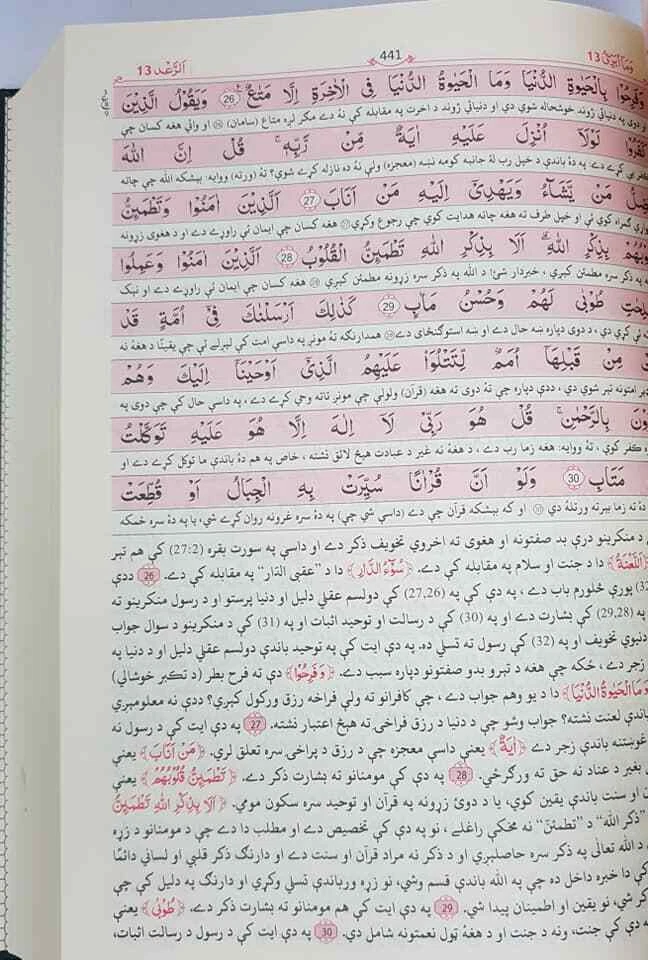 وَمَآ اُبَرِّئُ 13 441 اَلرَّعْد 13
وَفَرِحُوْا بِالْحَيٰوةِ الدُّنْيَا وَمَا الْحَيٰوةُ الدُّنْيَا فِى الْاٰخِرَةِ اِلَّا مَتَاعٌ 26 وَيَقُوْلُ الَّذِيْنَ
او دوی په دنیائي ژوند خوشحاله شوي دي او دنیائي ژوند د اخرت په مقابله کې نهٔ دے مګر لږه متاع (سامان) او وائي هغه کسان چې
كَفَرُوْا لَوْلَآ اُنْزِلَ عَلَيْهِ اٰيَةٌ مِّنْ رَّبِّهٖ قُلْ اِنَّ اللّٰهَ
کفر یې کړے دے: په دهٔ باندې د خپل رب لهٔ جانبه کومه نښه (معجزه) ولې نهٔ ده نازله کړے شوې؟ تهٔ (ورته) ووایه: بېشکه الله چې چاته
مَنْ يَّشَآءُ وَيَهْدِىْٓ اِلَيْهِ مَنْ اَنَابَ 27 اَلَّذِيْنَ اٰمَنُوْا وَتَطْمَئِنُّ
ګمراه کوي ئې او خپل طرف ته هغه چاته هدایت کوي چې رجوع وکړي هغه کسان چې ایمان ئې راوړے دے او د هغوی زړونه
بِذِكْرِ اللّٰهِ اَلَا بِذِكْرِ اللّٰهِ تَطْمَئِنُّ الْقُلُوْبُ 28 اَلَّذِيْنَ اٰمَنُوْا وَعَمِلُوا
په ذکر سره مطمئن کېږي ، خبردار شئ! د الله په ذکر سره زړونه مطمئن کېږي هغه کسان چې ایمان ئې راوړے دے او نېک
طُوْبٰى لَهُمْ وَحُسْنُ مَاٰبٍ 29 كَذٰلِكَ اَرْسَلْنٰكَ فِىْٓ اُمَّةٍ قَدْ
ئې کړي دي ، د دوی دپاره ښه حال دے او ښه استوګنځای دے همدارنګه تهٔ مونږ په داسې امت کې لېږلے ئې چې یقینًا د هغهٔ نه
مِنْ قَبْلِهَآ اُمَمٌ لِّتَتْلُوَا۟ عَلَيْهِمُ الَّذِىْٓ اَوْحَيْنَآ اِلَيْكَ وَهُمْ
امتونه تېر شوي دي ، ددې دپاره چې تهٔ دوی ته هغه (قرآن) ولولې چې مونږ تاته وحي کړے دے ، په داسې حال کې چې دوی په
بِالرَّحْمٰنِ قُلْ هُوَ رَبِّىْ لَآ اِلٰهَ اِلَّا هُوَ عَلَيْهِ تَوَكَّلْتُ
کفر کوي ، تهٔ ووایه: هغه زما رب دے ، د هغهٔ نه غیر د عبادت هېڅ لائق نشته ، خاص په هم دهٔ باندې ما توکل کړے دے او
مَتَابِ 30 وَلَوْ اَنَّ قُرْاٰنًا سُيِّرَتْ بِهِ الْجِبَالُ اَوْ قُطِّعَتْ
دهٔ ته زما بیرته ورتلهٔ دي او که بېشکه قرآن چې دے (داسې شي چې) په دهٔ سره غرونه روان کړے شي، یا په دهٔ سره ځمکه
د منکرینو درې بد صفتونه او هغوی ته اخروي تخویف ذکر دے او داسې په سورت بقره (27:2) کې هم تېر
﴿اَللَّعْنَةُ﴾ دا د جنت او سلام په مقابله کې دے. ﴿سُوْٓءُ الدَّارِ﴾ دا د "عقبى الدّار" په مقابله کې دے. 26 ددې
پورې څلورم باب دے ، په دې کې په (27,26) کې دولسم عقلي دلیل او دنیا پرستو او د رسول منکرینو ته
(29,28) کې بشارت دے او په (30) کې د رسالت او توحید اثبات او په (31) کې د منکرینو د سوال جواب
دنیوي تخویف او په (32) کې رسول ته تسلي ده. په دې ایت کې په توحید باندې دولسم عقلي دلیل او د دنیا په
زجر دے ، ځکه چې هغه د تېرو بدو صفتونو دپاره سبب دے. ﴿وَفَرِحُوْا﴾ دې ته فرح بطر (د تکبر خوشالي)
﴿وَمَا الْحَيٰوةُ الدُّنْيَا﴾ دا د یو وهم جواب دے ، چې کافرانو ته ولې فراخه رزق ورکول کېږي؟ ددې نه معلومېږي
باندې لعنت نشته؟ جواب وشو چې د دنیا د رزق فراخۍ ته هېڅ اعتبار نشته. 27 په دې ایت کې د رسول نه
غوښتنه باندې زجر دے ﴿اٰيَةٌ﴾ یعنې داسې معجزه چې د رزق د پراخۍ سره تعلق لري. ﴿مَنْ اَنَابَ﴾ یعنې
بغیر د عناد نه حق ته ورګرځي. 28 په دې کې مومنانو ته بشارت ذکر دے. ﴿تَطْمَئِنُّ قُلُوْبُهُمْ﴾ یعنې
او سنت باندې یقین کوي، یا د دوئ زړونه په قرآن او توحید سره سکون مومي. ﴿اَلَا بِذِكْرِ اللّٰهِ تَطْمَئِنُّ
"ذکر الله" د "تطمئن" نه مخکې راغلے ، نو په دې کې تخصیص دے او مطلب دا دے چې د مومنانو د زړه
د الله تعالٰی په ذکر سره حاصلېږي او د ذکر نه مراد قرآن او سنت دے او دارنګ ذکر قلبي او لساني دائمًا
کې دا خبره داخل ده چې په الله باندې قسم وشي، نو زړه ورباندې تسلي وکړي او دارنګ په دلیل کې چې
شي، نو یقین او اطمینان پیدا شي. 29 په دې ایت کې هم مومنانو ته بشارت ذکر دے. ﴿طُوْبٰى﴾ یعنې
په دې کې جنت، ونه د جنت او د هغهٔ ټول نعمتونه شامل دي. 30 په دې ایت کې د رسول د رسالت اثبات،